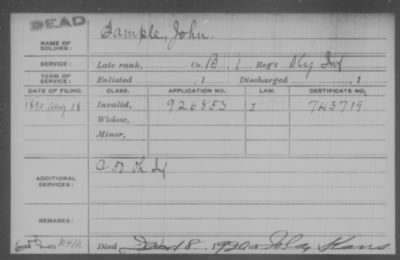 DEAD
NAME OF SOLDIER: Sample, John.
SERVICE: Late rank, Co. B, 1 Reg't Ky Inf
TERM OF SERVICE: Enlisted , 1 Discharged , 1
DATE OF FILING. CLASS. APPLICATION NO. LAW. CERTIFICATE NO.
1890 Aug 18 Invalid, 926853 I 743719
Widow,
Minor,
ADDITIONAL SERVICES:
REMARKS:
Died 18, 1920 at Iola, Kans